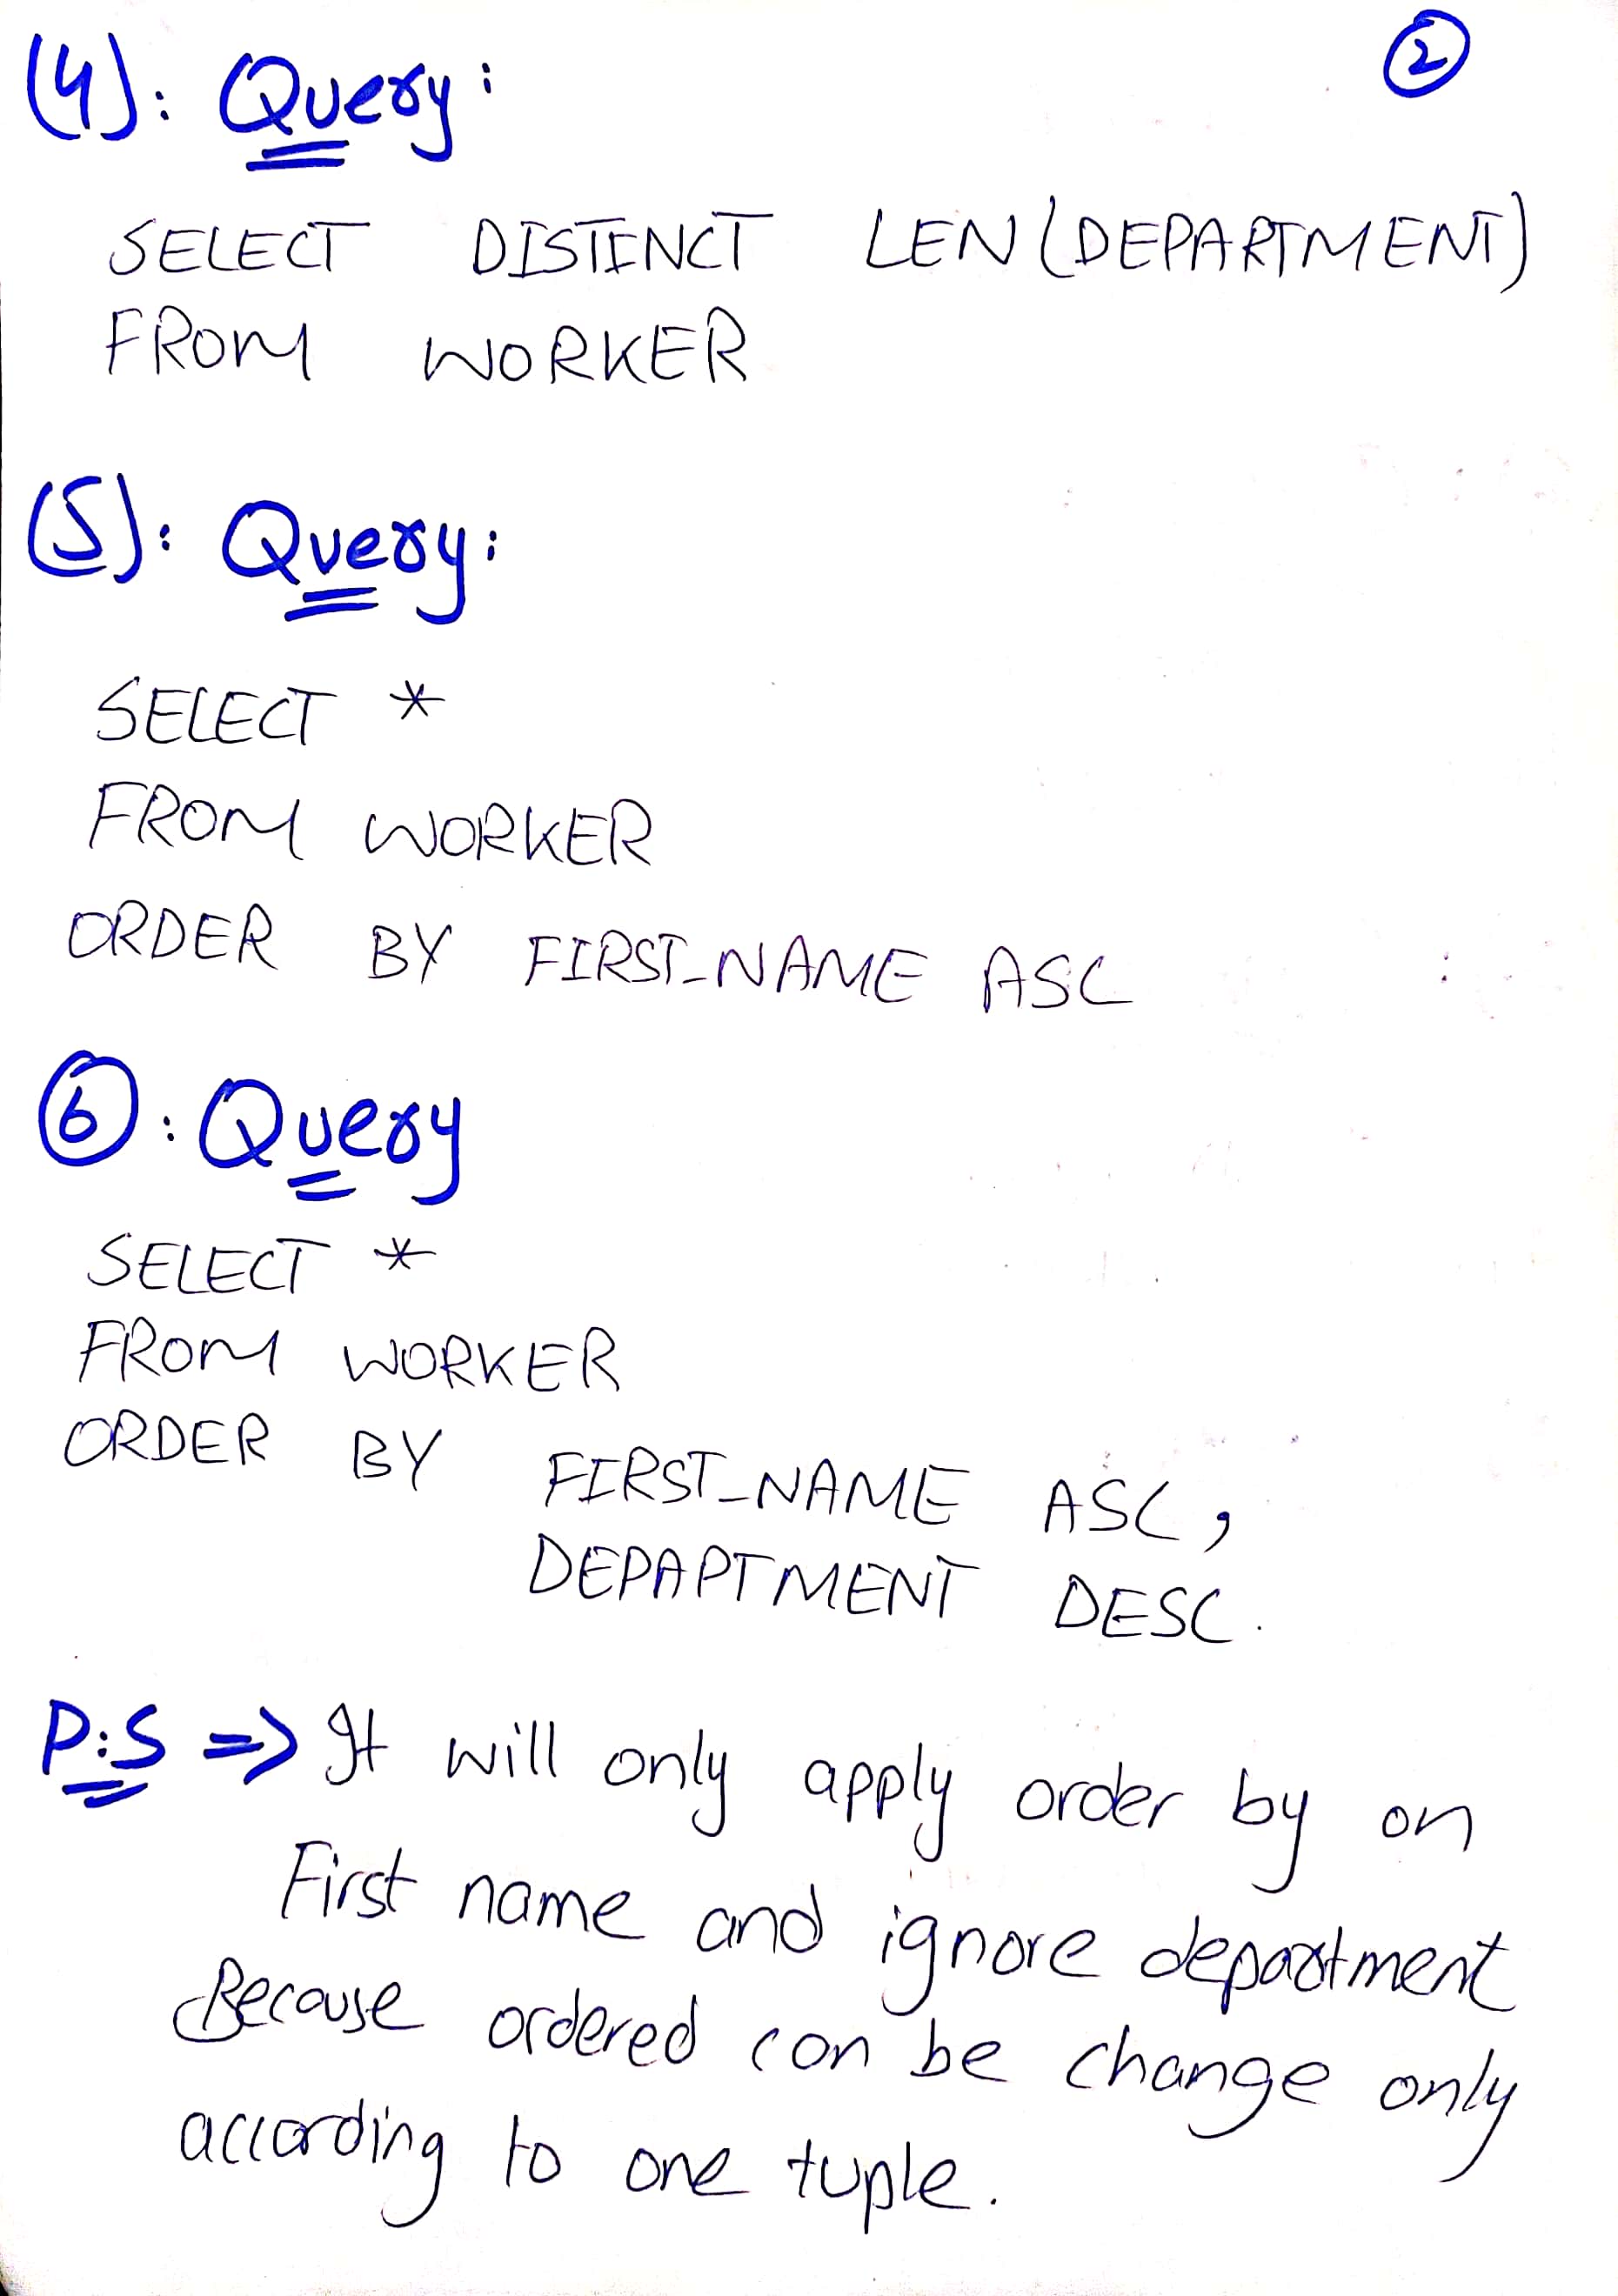 (4): Query: 2
SELECT DISTINCT LEN(DEPARTMENT)
FROM WORKER
(5): Query:
SELECT *
FROM WORKER
ORDER BY FIRST_NAME ASC
6: Query
SELECT *
FROM WORKER
ORDER BY FIRST_NAME ASC,
DEPAPTMENT DESC.
P:S => It will only apply order by on
First name and ignore department
Because ordered can be change only
according to one tuple.